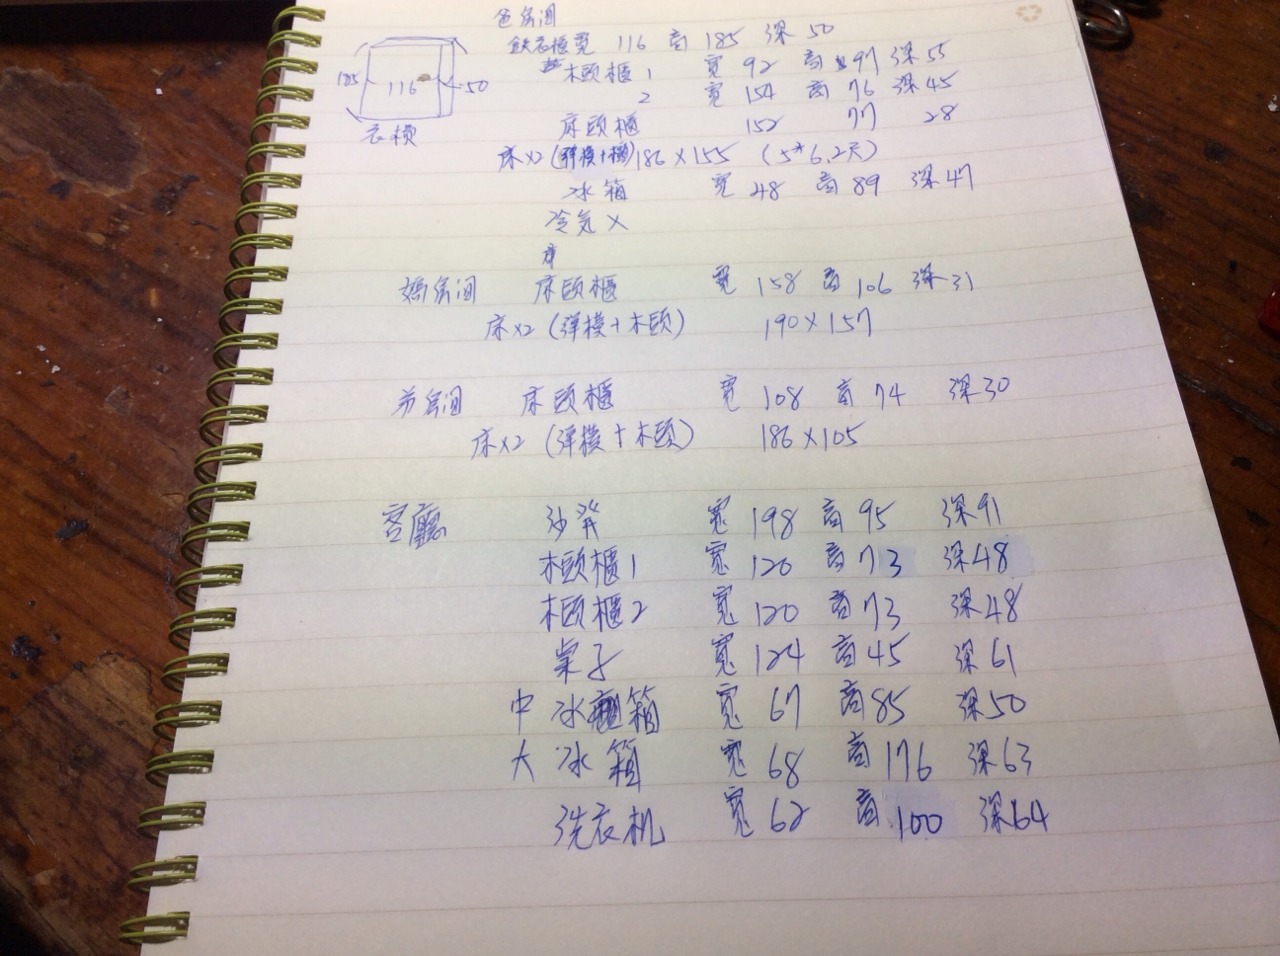 爸房间
鉄衣柜宽 116 高 185 深 50
185 116 50
衣橱
木頭櫃 1 寬 92 高 97 深 55
2 寬 154 高 76 深 45
床頭櫃 152 77 28
床×2 (弹模+櫃) 186×155 (5*6.2尺)
冰箱 寬 48 高 89 深 47
冷気 ×
媽房间 床頭櫃 寬 158 高 106 深 31
床×2 (弹模+木頭) 190×157
弟房间 床頭櫃 寬 108 高 74 深 30
床×2 (弹模+木頭) 186×105
客廳 沙発 寬 198 高 95 深 91
木頭櫃 1 寬 120 高 73 深 48
木頭櫃 2 寬 120 高 73 深 48
桌子 寬 124 高 45 深 61
中 冰箱 寬 67 高 85 深 50
大 冰箱 寬 68 高 176 深 63
洗衣机 寬 62 高 100 深 64